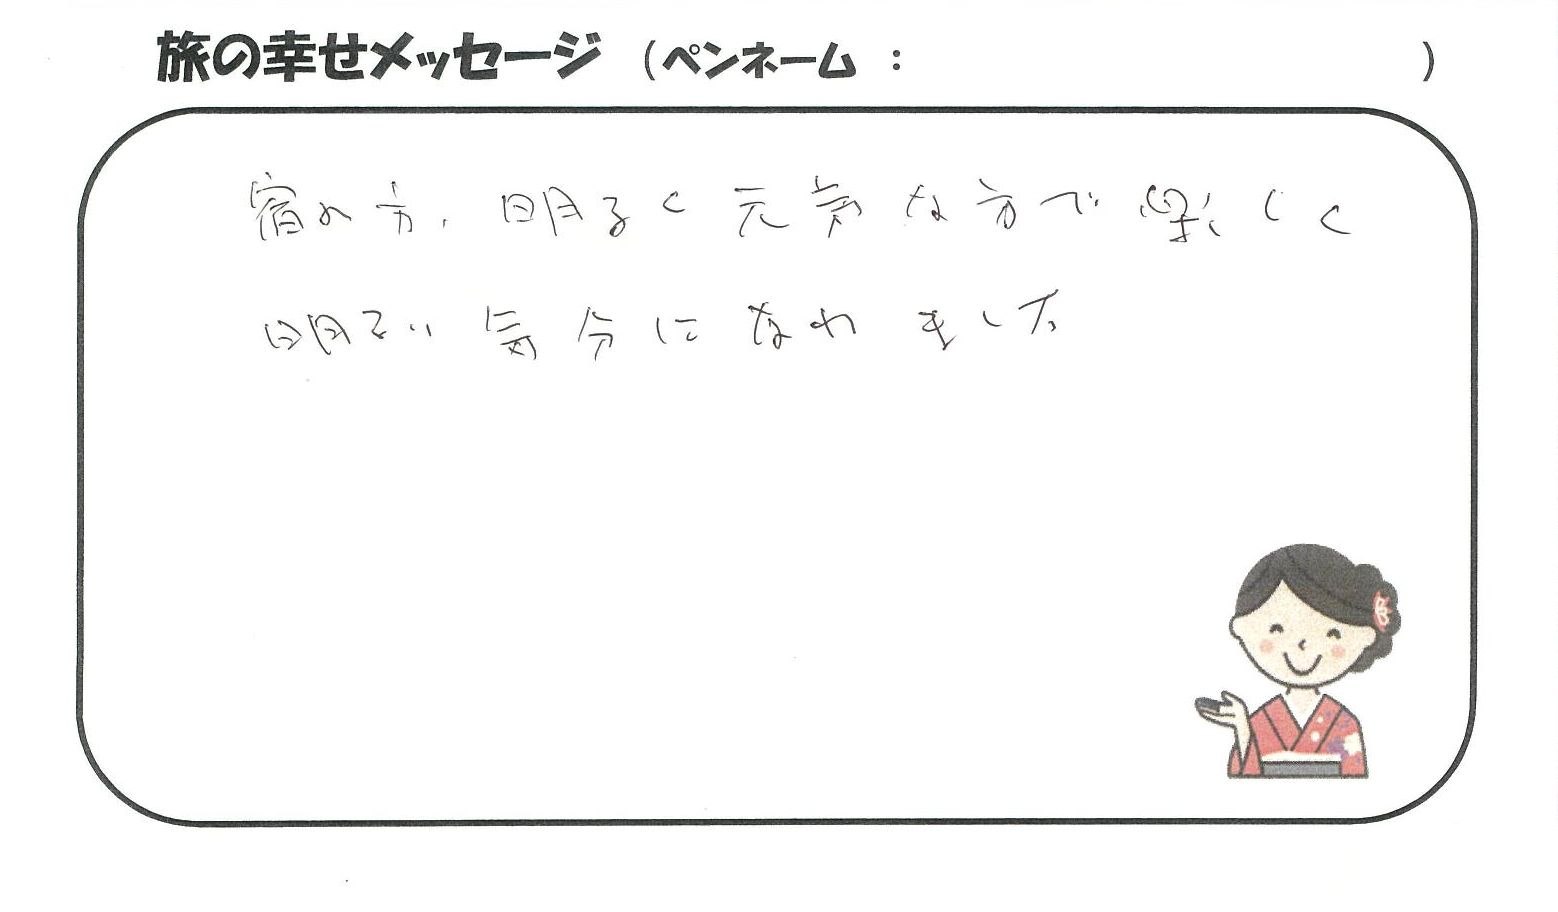 旅の幸せメッセージ (ペンネーム : )
宿の方、明るく元気な方で楽しく
明るい気分になれました